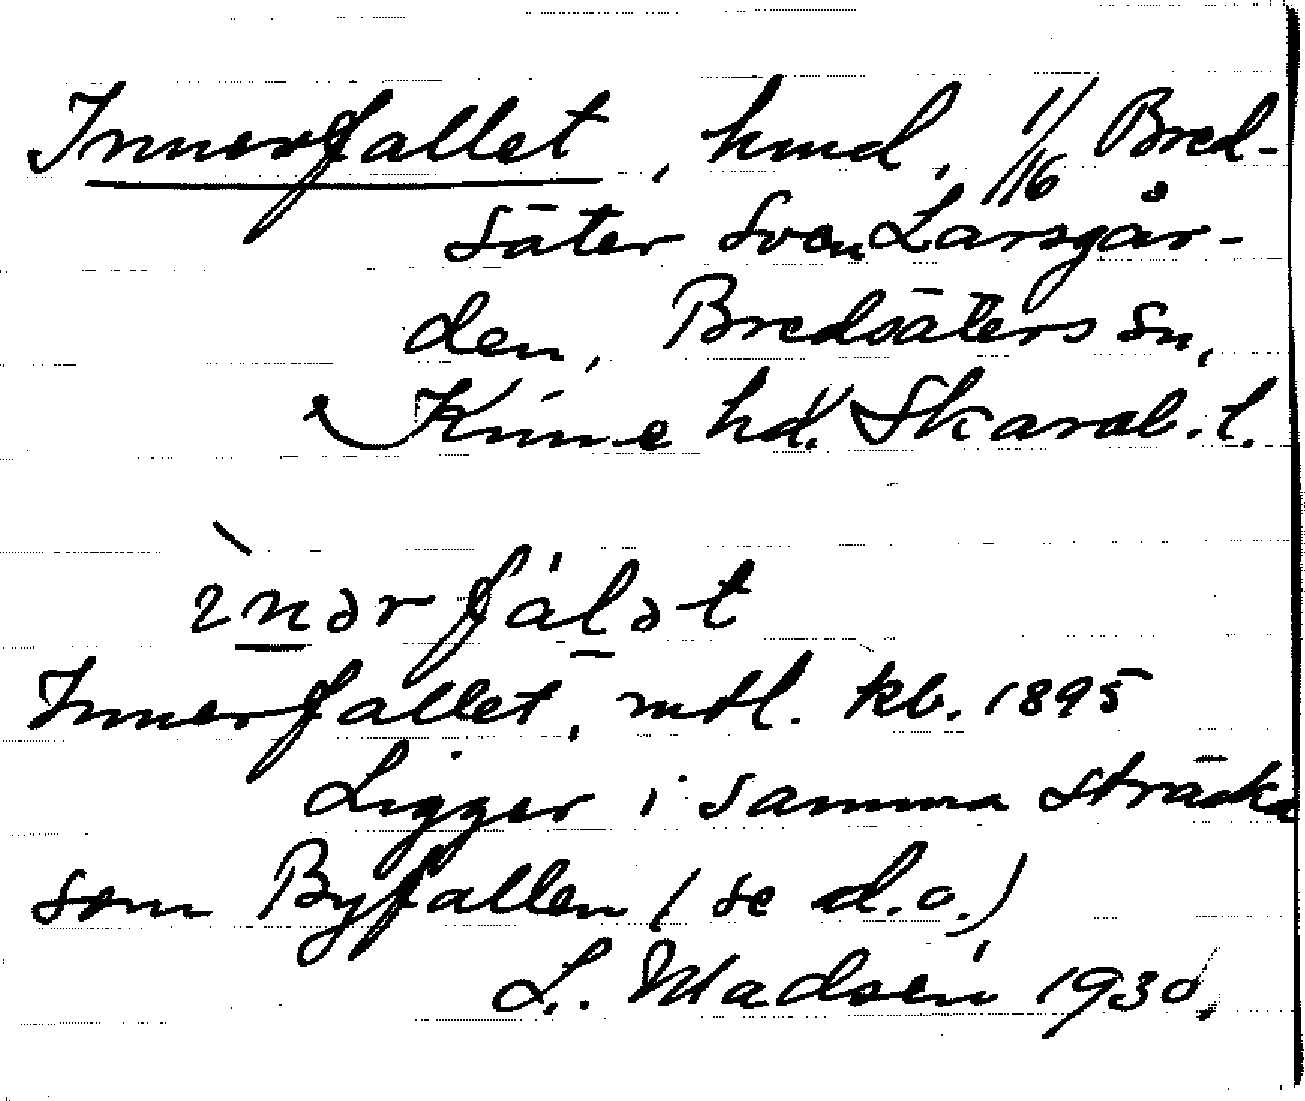 Innerfallet, hmd, 1/16 Bred-
säter Sven Larsgår-
den, Bredsäters sn,
Kinne hd. Skarab. l.
ìnərfálət
Innerfallet, mtl. kb. 1895
Ligger i samma sträcka
som Byfallen (se d.o.)
L. Madsén 1930.